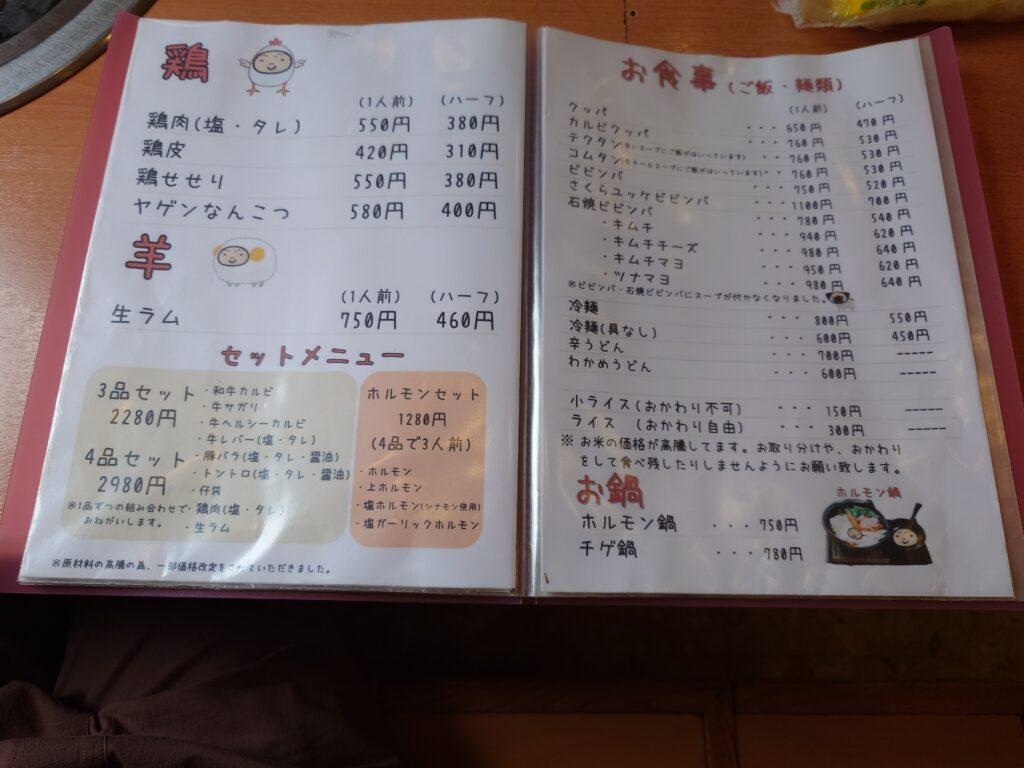 鶏
(1人前) (ハーフ)
鶏肉(塩・タレ) 550円 380円
鶏皮 420円 310円
鶏せせり 550円 380円
ヤゲンなんこつ 580円 400円
羊
(1人前) (ハーフ)
生ラム 750円 460円
セットメニュー
3品セット
2280円
4品セット
2980円
・和牛カルビ
・牛サガリ
・牛ヘルシーカルビ
・牛レバー(塩・タレ)
・豚バラ(塩・タレ・醤油)
・トントロ(塩・タレ・醤油)
・仔袋
・鶏肉(塩・タレ)
・生ラム
※1品ずつの組み合わせで
おねがいします。
ホルモンセット
1280円
(4品で3人前)
・ホルモン
・上ホルモン
・塩ホルモン(シナモン使用)
・塩ガーリックホルモン
※原材料の高騰の為、一部価格改定をさせていただきました。
お食事(ご飯・麺類)
(1人前) (ハーフ)
クッパ ・・・650円 470円
カルビクッパ ・・・760円 530円
テクタン(辛いスープにご飯がはいっています) ・・760円 530円
コムタン(テールスープにご飯がはいっています)・・760円 530円
ビビンバ ・・・750円 520円
さくらユッケビビンバ ・・・1100円 700円
石焼ビビンバ ・・・780円 540円
・キムチ ・・・940円 620円
・キムチチーズ ・・・980円 640円
・キムチマヨ ・・・950円 620円
・ツナマヨ ・・・980円 640円
※ビビンバ・石焼ビビンバにスープが付かなくなりました。
冷麺 ・・・800円 550円
冷麺(具なし) ・・・600円 450円
辛うどん ・・・700円 -----
わかめうどん ・・・600円 -----
小ライス(おかわり不可) ・・・150円 -----
ライス (おかわり自由) ・・・300円 -----
※ お米の価格が高騰してます。お取り分けや、おかわり
をして食べ残したりしませんようにお願い致します。
お鍋
ホルモン鍋
ホルモン鍋 ・・・750円
チゲ鍋 ・・・780円